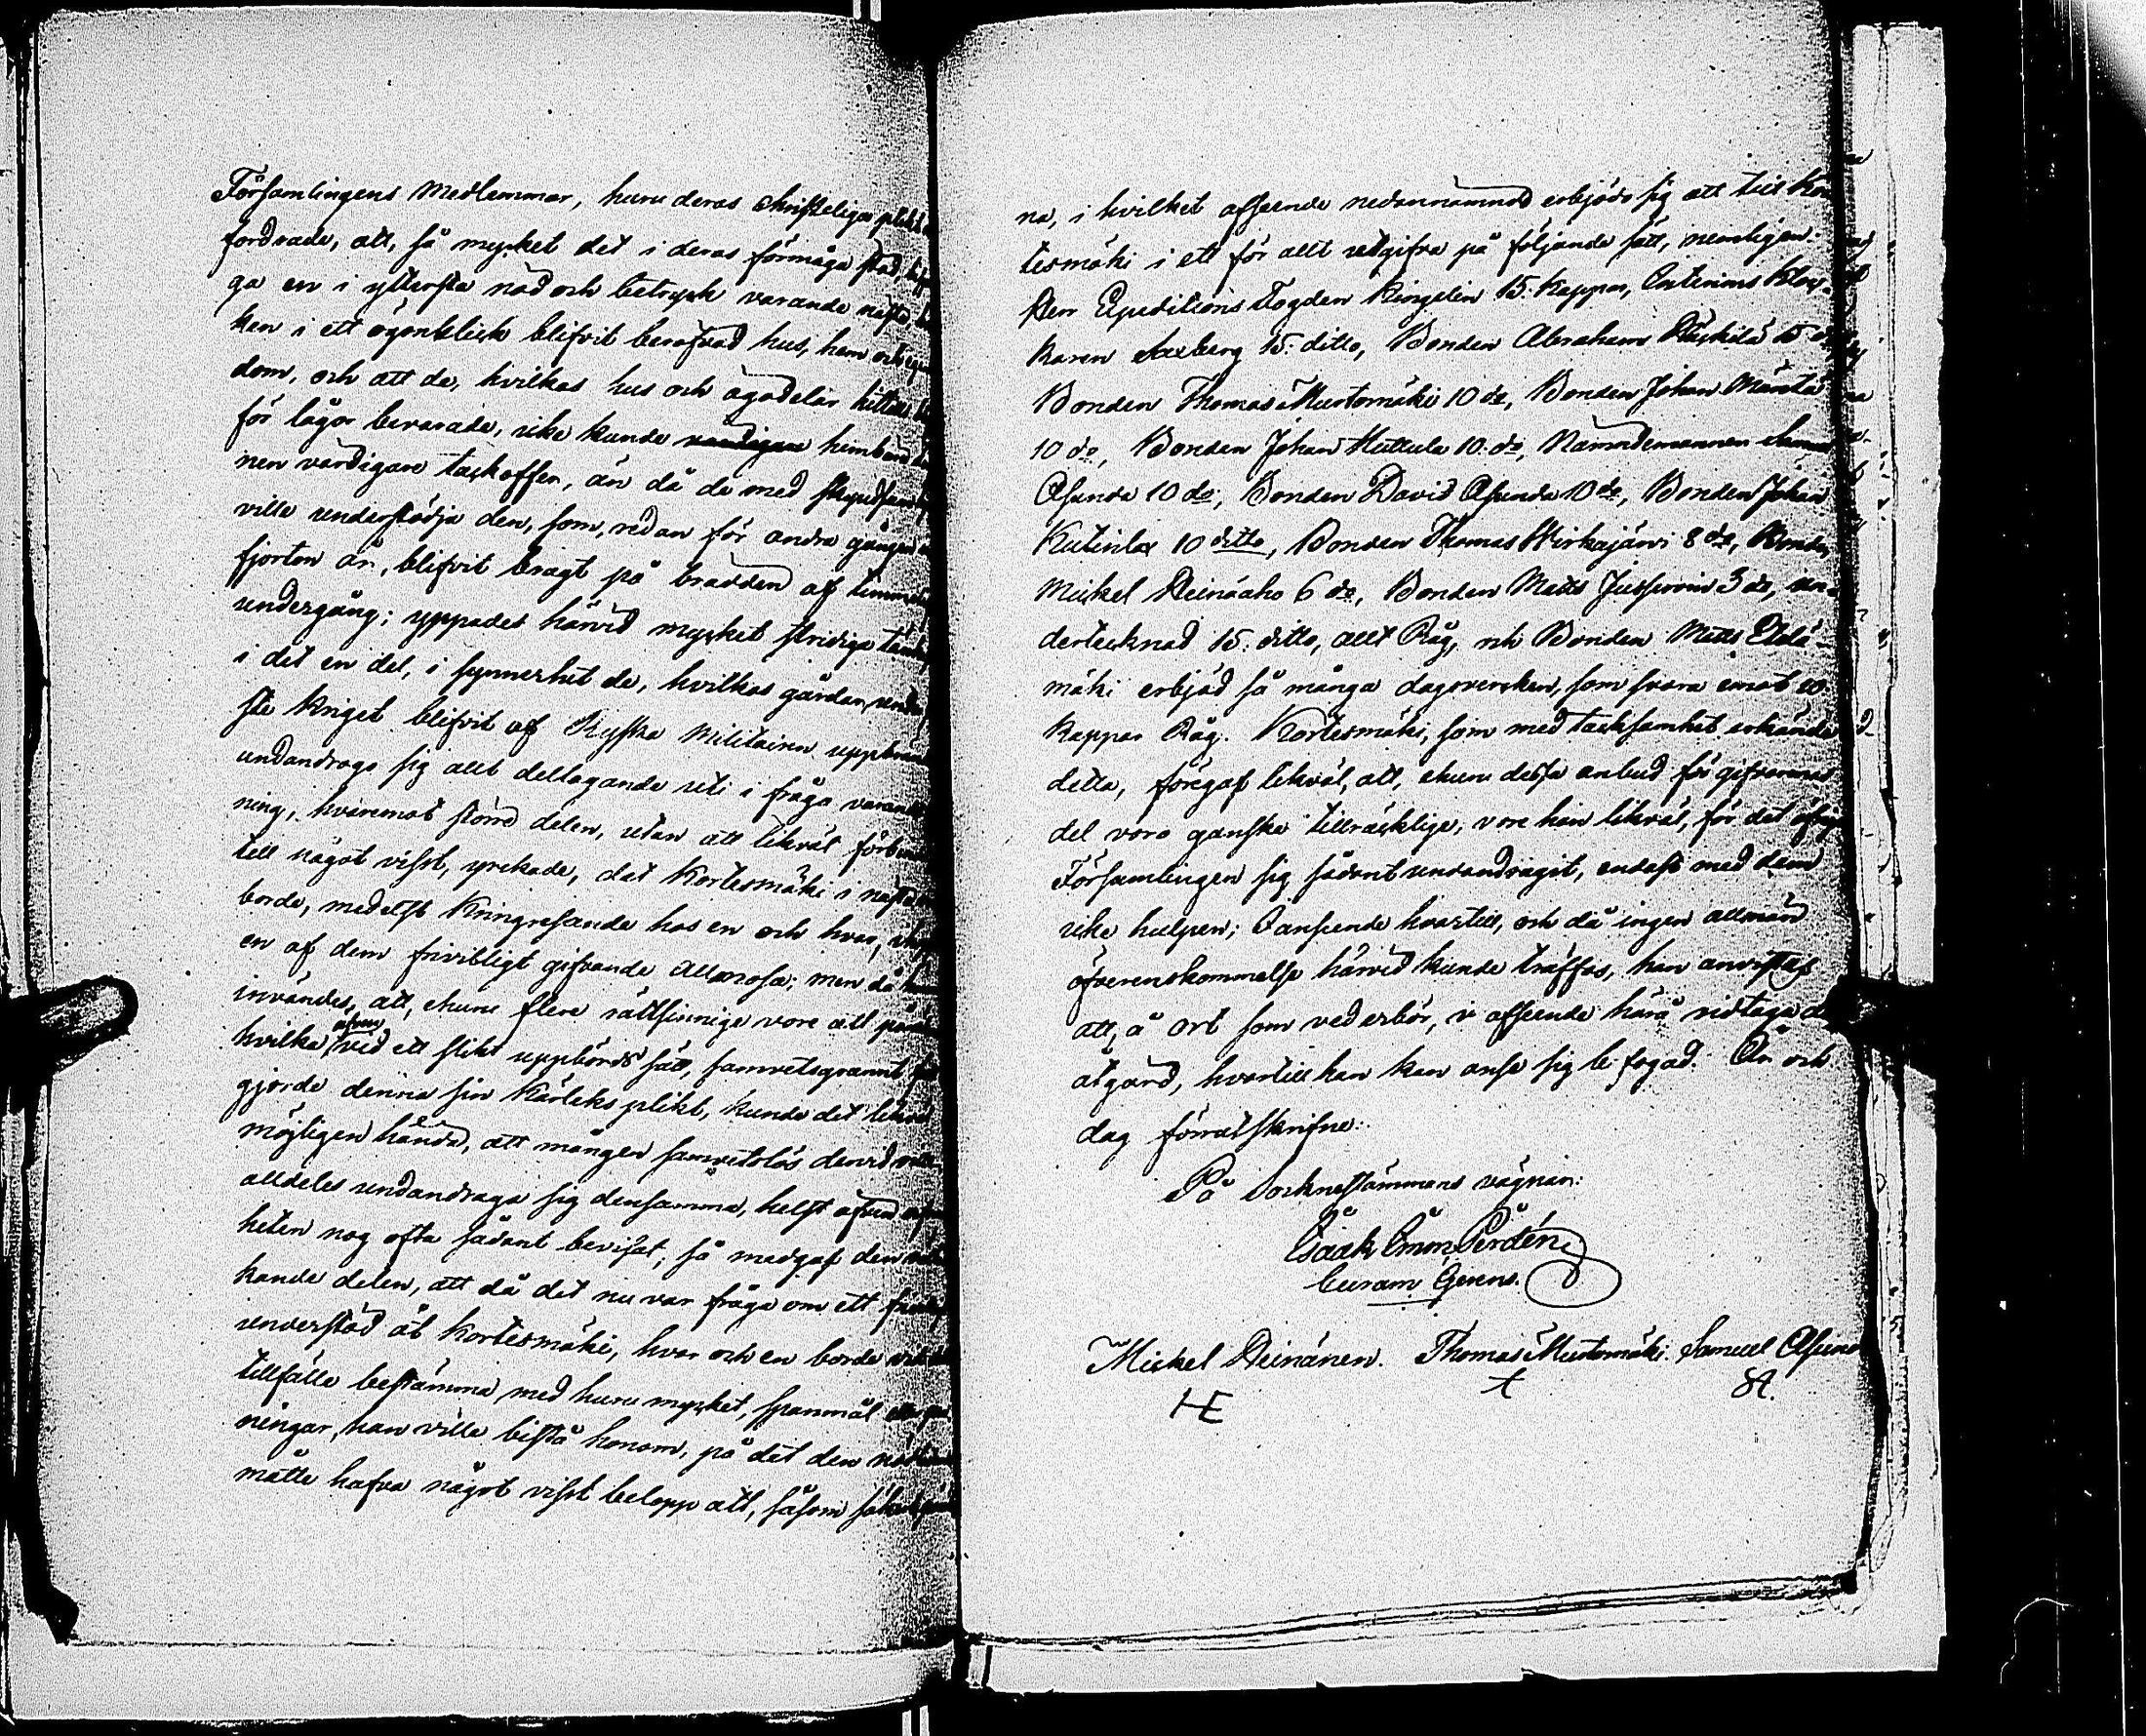 Församlingens Medlemmar, huru deras christeliga
fordrade, att, så mycket det i deras förmåga stod,
ga en i yttersta nöd och betryck varande nästa,
ken i ett ögonblick blifvit beröfvad hus, hem och
dom, och att de, hvilkas hus och ägodelar hittils
för lågor bevarade, icke kunde hembära
nen värdigare tackoffer, än då de med
ville understödja den, som, redan för andra gången
fjorton år, blifvit bragt på brädden af
undergång; yppades härvid mycket stridiga
i det en del, i synnerhet de, hvilkas gårdar, under
ste kriget blifvit af Ryska Militairen
undandrogo sig allt deltagande uti i fråga
ning, hvaremot större delen, utan att likväl
till något visst, yrckade, det Kortesmäki i
borde, medelst Kringresande hos en och hvar,
en af dem frivilligt gifvande Allmosa; men då
invändes, att, ehuru flere rättsinnige vore att
hvilka äfven vid ett slikt uppbörds sätt, samvetsgrannt
gjorde denna sin Kärleks plikt, kunde det
möjligen hända, att mången samvetslös dervid
alldeles undandraga sig densamma, helst äfven
heten nog ofta sådant bevisat; så medgaf den
kande delen, att då det nu var fråga om ett
understöd åt Kortesmäki, hvar och en borde
tillfälle bestämma, med huru mycket, spanmål
ningar, han ville bistå honom, på det den
måtte hafva något visst belopp att, såsom
na, i hvilket afseende nedannämnde erbjödo sig att till Kor
tesmäki i ett för allt utgifva på följande sätt, nemligen:
Herr Expeditions Fogden Ringelin 15. Kappar, Interims Kloc-
karen Saxberg 15. ditto, Bonden Abraham 15
Bonden Thomas Murtomäki 10 do, Bonden Johan Mäntä
10 do, Bonden Johan Huttula 10. do, Nämndemannen Samuel
Asunda 10 do, Bonden David Asunda 10 do, Bonden Johan
10 ditto, Bonden Thomas Hirkajärvi 8 do, Bonden
Mickel Heinäaho 6 do, Bonden Matts 3 do, un-
dertecknad 15. ditto, allt Råg, och Bonden Matts Etelä-
mäki erbjöd så många dagsverken, som svara emot 10
kappar Råg. Kortesmäki, som med tacksamhet erkände
detta, föregaf likväl, att, ehuru dessa anbud för gifvarenas
del voro ganska tillräcklige, vore han likväl, för det öfriga
Församlingen sig sådant undandragit, endast med dem
icke hulpen; I anseende hvartill, och då ingen allmän
öfverenskommelse härvid kunde träffas, han anvistes
att, å ort som vederbör, i afseende härå vidtaga de
åtgärd, hvartill han kan anse sig befogad. År och
dag förutskrifne:
På Socknestämmans vägnar:
Isaak Perdén
Curam Gerens.
Mickel Heinänen. Thomas Murtomäki. Samuel Asunda
HE t SA.